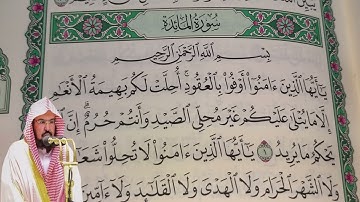 سُورَةُ المَائِدَةِ
بِسْمِ اللَّهِ الرَّحْمَٰنِ الرَّحِيمِ
يَٰٓأَيُّهَا ٱلَّذِينَ ءَامَنُوٓا۟ أَوْفُوا۟ بِٱلْعُقُودِ ۚ أُحِلَّتْ لَكُم بَهِيمَةُ ٱلْأَنْعَٰمِ
إِلَّا مَا يُتْلَىٰ عَلَيْكُمْ غَيْرَ مُحِلِّى ٱلصَّيْدِ وَأَنتُمْ حُرُمٌ ۗ إِنَّ
يَحْكُمُ مَا يُرِيدُ ١ يَٰٓأَيُّهَا ٱلَّذِينَ ءَامَنُوا۟ لَا تُحِلُّوا۟ شَعَ
وَلَا ٱلشَّهْرَ ٱلْحَرَامَ وَلَا ٱلْهَدْىَ وَلَا ٱلْقَلَٰٓئِدَ وَلَآ ءَآمِّينَ